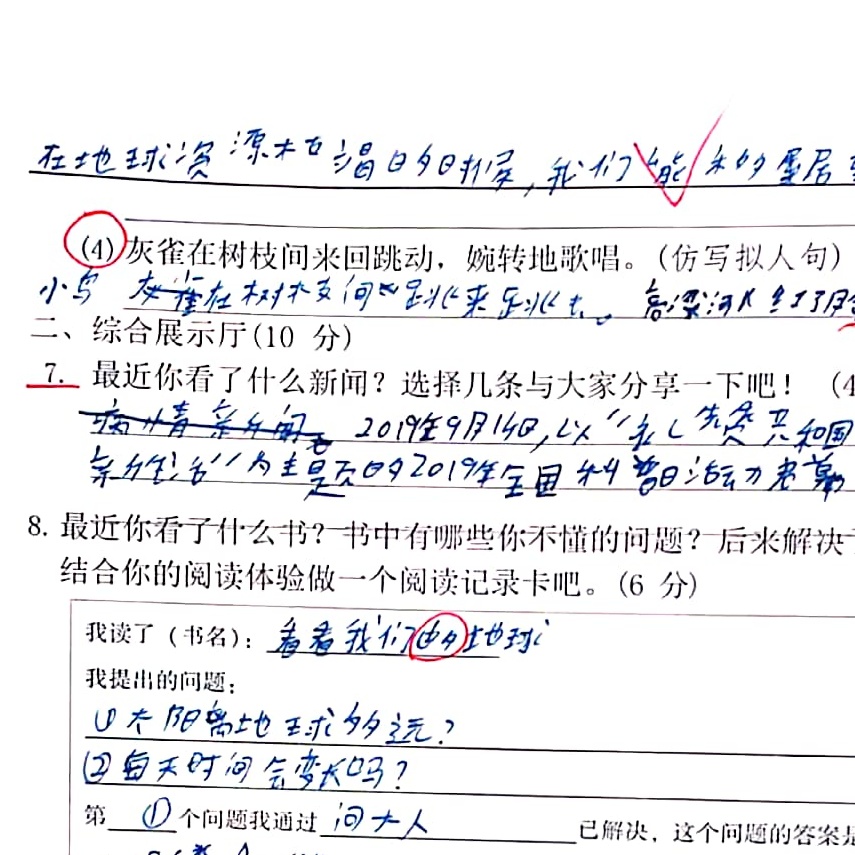 在地球资源枯竭的时候，我们能
(4)灰雀在树枝间来回跳动，婉转地歌唱。(仿写拟人句)
小鸟 在树枝间 跳来跳去。高粱 了
二、综合展示厅(10 分)
7. 最近你看了什么新闻？选择几条与大家分享一下吧！(4
2019年9月14日，以“礼赞共和国
新生活”为主题的2019年全国科普日活动 幕
8. 最近你看了什么书？书中有哪些你不懂的问题？后来解决
结合你的阅读体验做一个阅读记录卡吧。(6 分)
我读了（书名）：看看我们的地球
我提出的问题：
①太阳离地球多远？
②每天时间会变长吗？
第①个问题我通过问大人已解决，这个问题的答案是